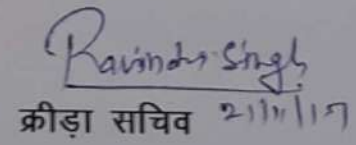 Ravinder Singh
क्रीड़ा सचिव 21/11/17